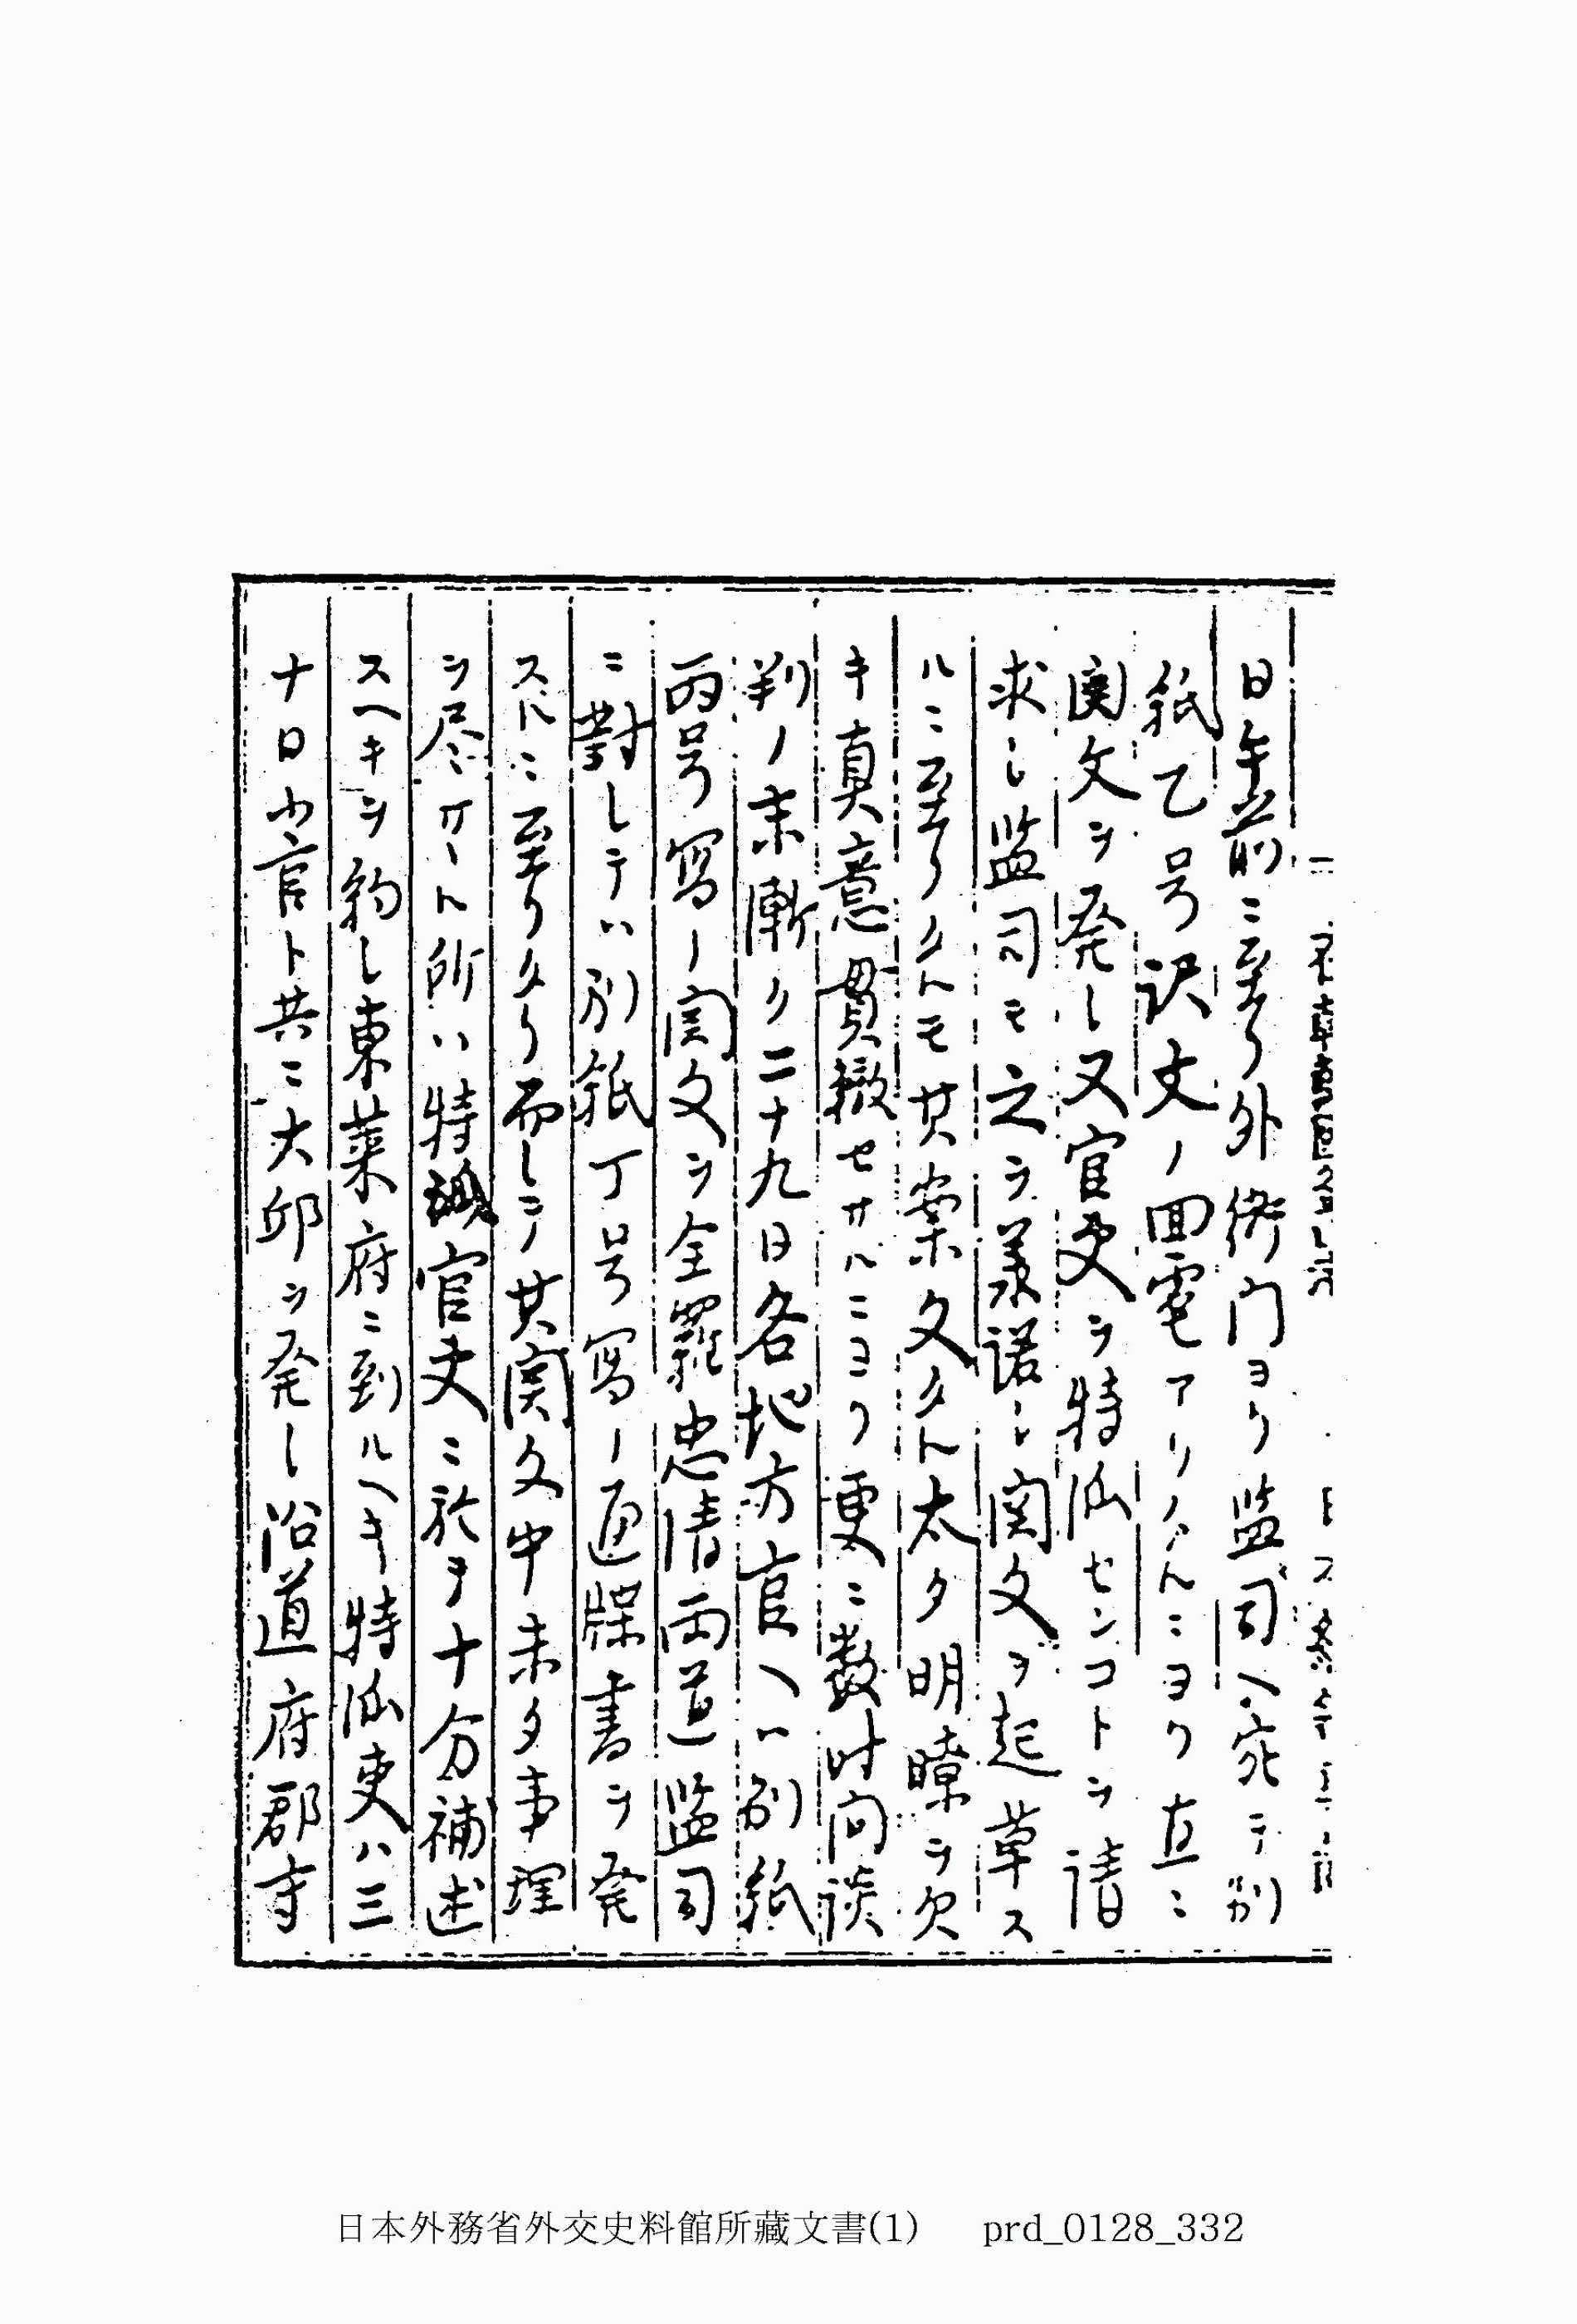 日午前ニ至リ外衙门ヨリ監司ヘ宛テ別
紙乙号訳文ノ回電アリタルニヨリ直ニ
関文ヲ発シ又官吏ヲ特派センコトヲ請
求シ監司モ之ヲ承諾シ関文ヲ起草ス
ルニ至リタレトモ其案文タル太タ明瞭ヲ欠
キ真意貫徹セサルニヨリ更ニ数时向談
判ノ末漸ク二十九日各地方官ヘハ別紙
丙号写ノ関文ヲ全羅忠清両道監司
ニ對シテハ別紙丁号写ノ通牒書ヲ発
スルニ至リタリ而シテ其関文中未タ事理
ヲ尽サヽル所ハ特派官吏ニ於テ十分補述
スヘキヲ約シ東萊府ニ到ルヘキ特派吏ハ三
十日小官ト共ニ大邱ヲ発シ沿道府郡守
日本外務省外交史料館所藏文書(1) prd_0128_332